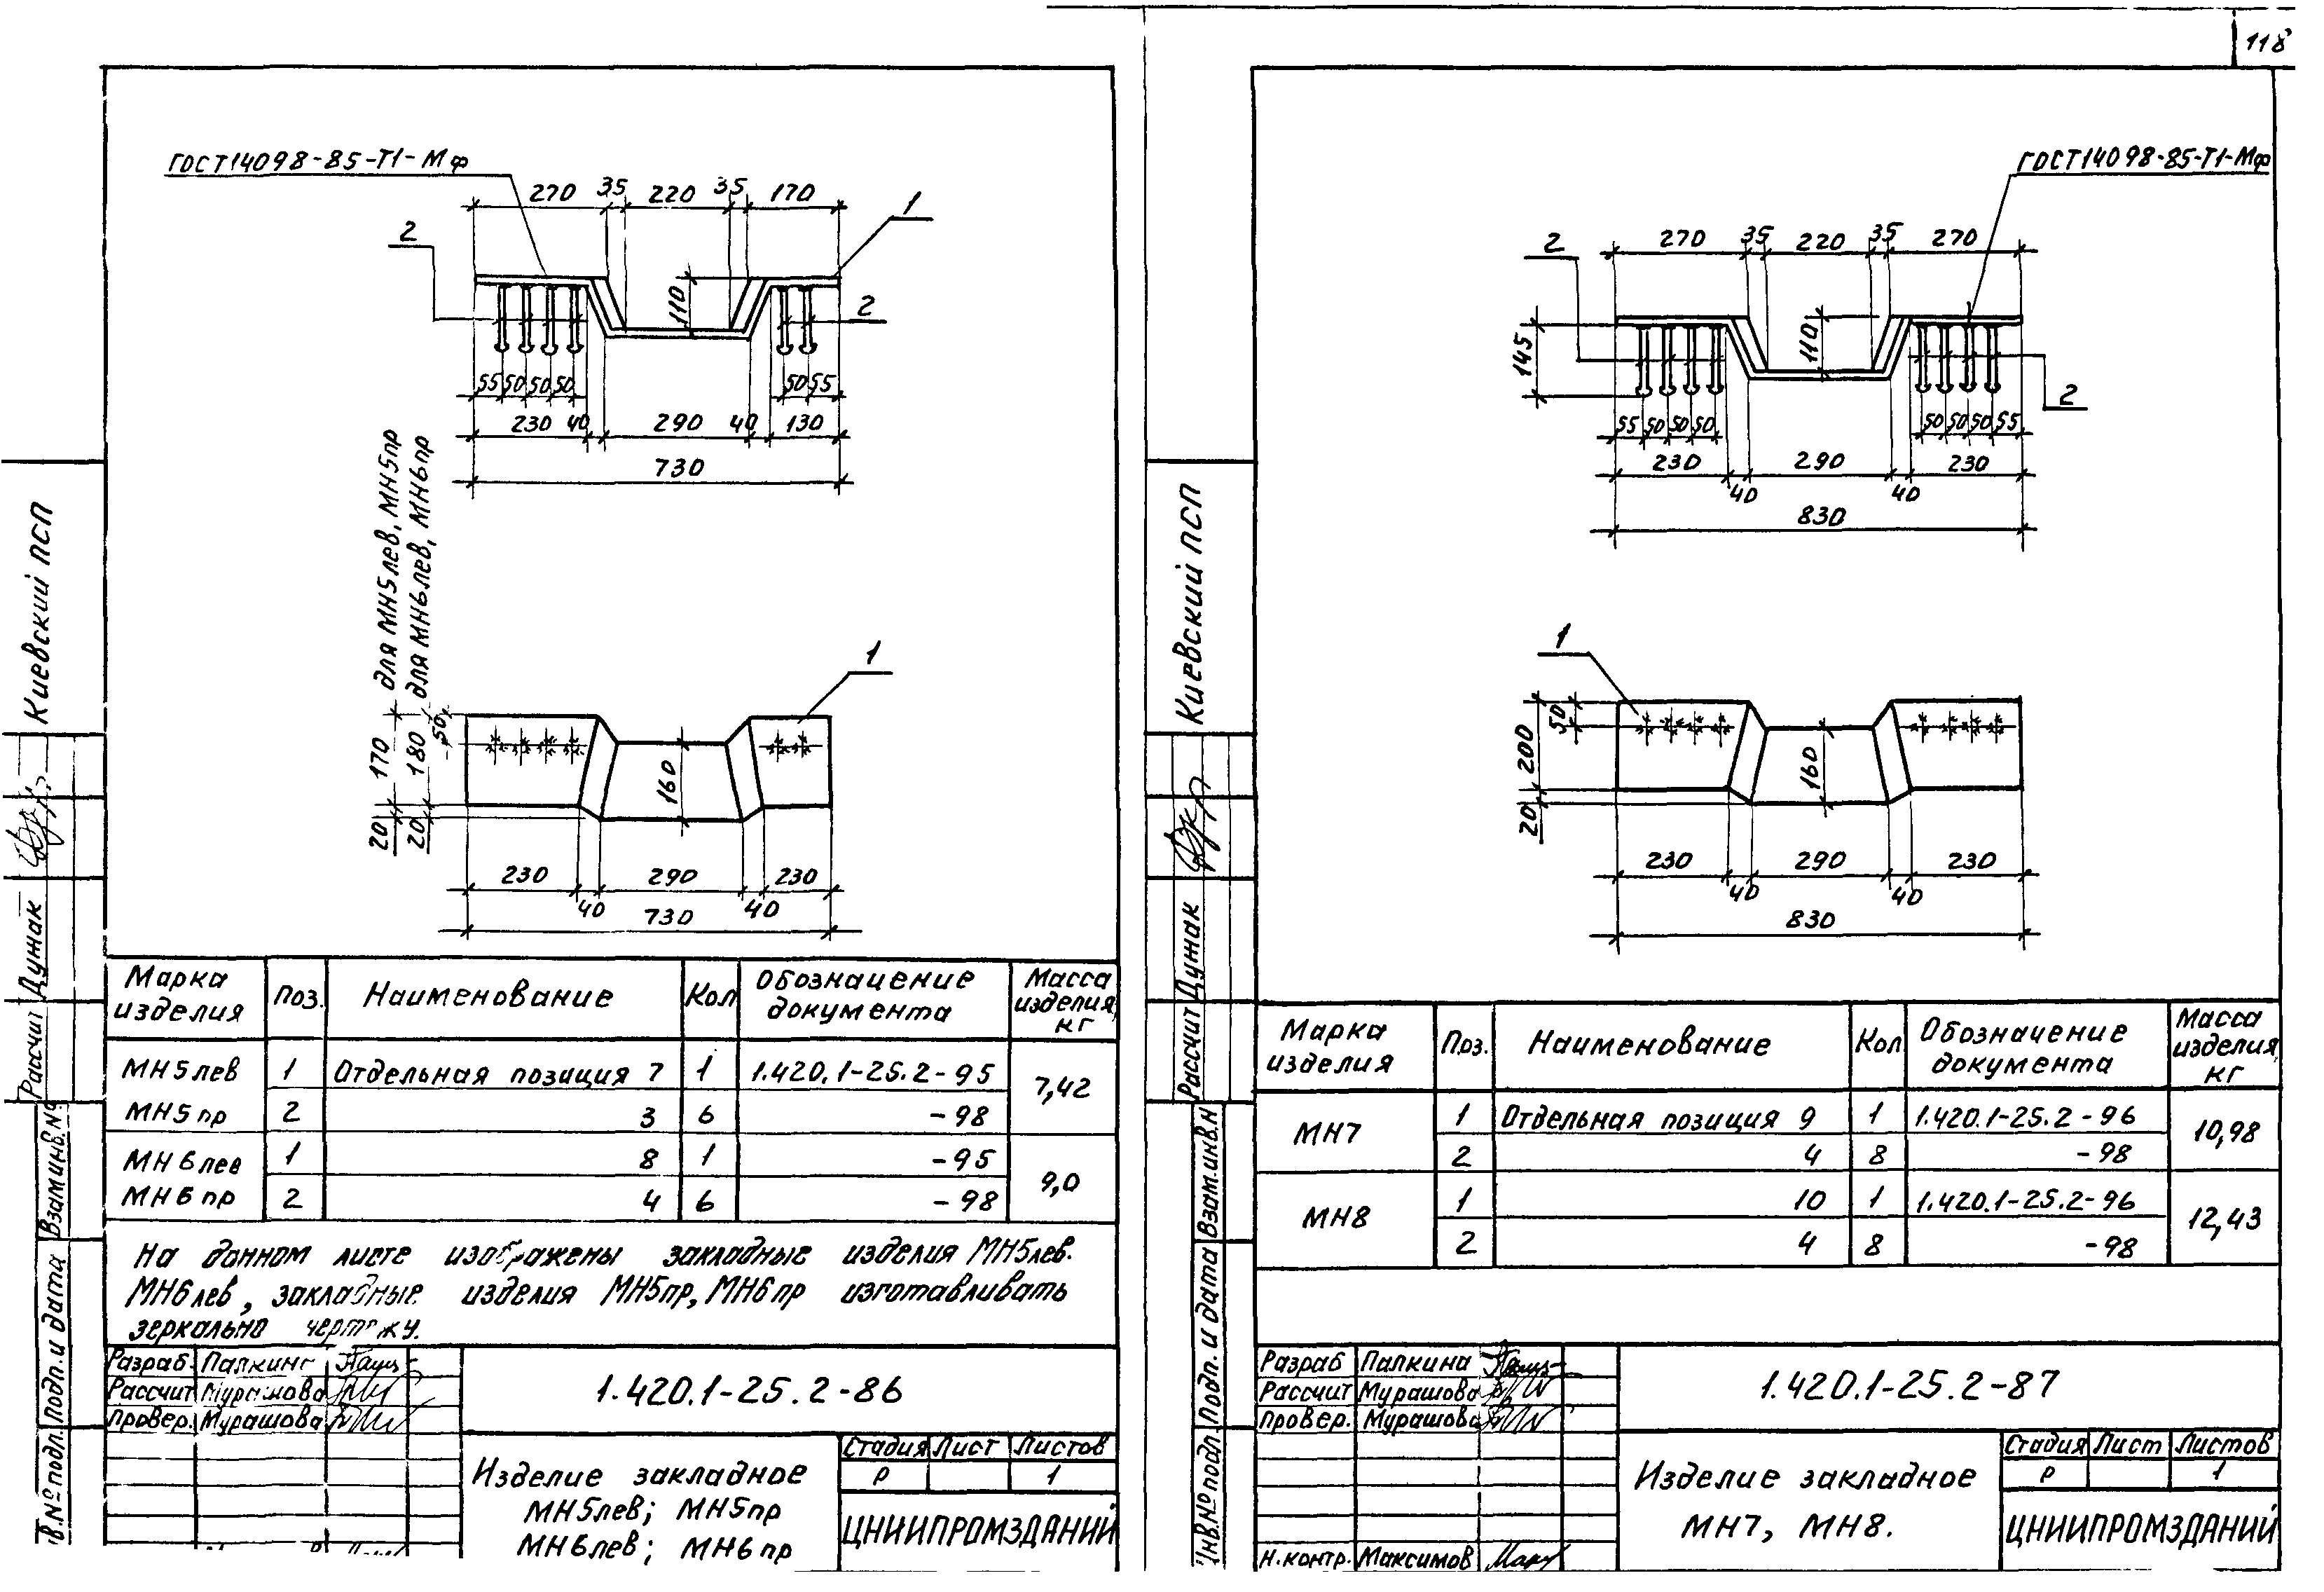 118
ГОСТ14098-85-Т1-Мф
270 35 220 35 170
1
2
110
2
55 50 50 50 50 55
230 40 290 40 130
730
170 для МН5лев, МН5пр
180 для МН6лев, МН6пр
50
20
20
1
160
230 290 230
40 730 40
Марка изделия
Поз.
Наименование
Кол
Обозначение документа
Масса изделия, кг
МН5лев 1 Отдельная позиция 7 1 1.420.1-25.2-95 7,42
МН5пр 2 3 6 -98
МН6лев 1 8 1 -95 9,0
МН6пр 2 4 6 -98
На данном листе изображены закладные изделия МН5лев.
МН6лев, закладные изделия МН5пр, МН6пр изготавливать
зеркально чертежу.
Разраб. Папкина
Рассчит Мурашова
Провер. Мурашова
1.420.1-25.2-86
Изделие закладное
МН5лев; МН5пр
МН6лев; МН6пр
Стадия Лист Листов
Р 1
ЦНИИПРОМЗДАНИЙ
Киевский ПСП
Рассчит Дужак
Взам.инв.№
Подп. и дата
нв.№подл.
ГОСТ14098-85-Т1-Мф
270 35 220 35 270
2
145
110
2
55 50 50 50 50 50 50 55
230 290 230
40 40
830
1
50
200
20
160
230 290 230
40 40
830
Марка изделия
Поз.
Наименование
Кол
Обозначение документа
Масса изделия, кг
МН7 1 Отдельная позиция 9 1 1.420.1-25.2-96 10,98
2 4 8 -98
МН8 1 10 1 1.420.1-25.2-96 12,43
2 4 8 -98
Разраб Папкина
Рассчит Мурашова
Провер. Мурашова
Н.контр. Максимов
1.420.1-25.2-87
Изделие закладное
МН7, МН8.
Стадия Лист Листов
Р 1
ЦНИИПРОМЗДАНИЙ
Киевский ПСП
Рассчит Дужак
Взам.инв.Н
Подп. и дата
Инв.№подл.